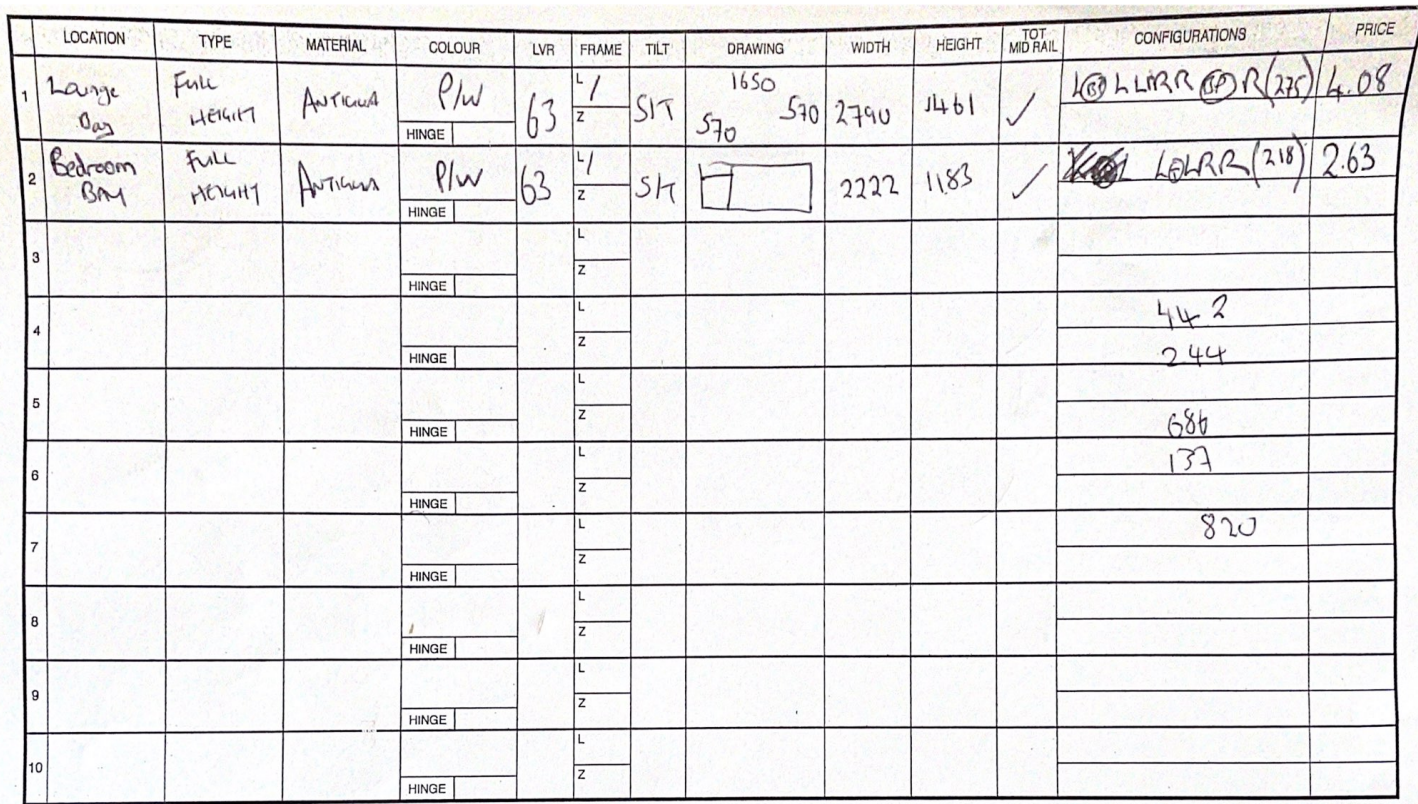 LOCATION TYPE MATERIAL COLOUR LVR FRAME TILT DRAWING WIDTH HEIGHT TOT MID RAIL CONFIGURATIONS PRICE
1 Lounge Bay Full HEIGHT ANTIGUA P/W HINGE 63 L / Z S/T 1650 570 570 2790 1461 ✓ L(B)LLMRR R(275) 4.08
2 Bedroom BAY Full HEIGHT ANTIGUA P/W HINGE 63 L / Z S/T 2222 1183 ✓ LRR(218) 2.63
3 HINGE L Z
4 HINGE L Z 442
244
5 HINGE L Z 686
6 HINGE L Z 137
7 HINGE L Z 820
8 HINGE L Z
9 HINGE L Z
10 HINGE L Z